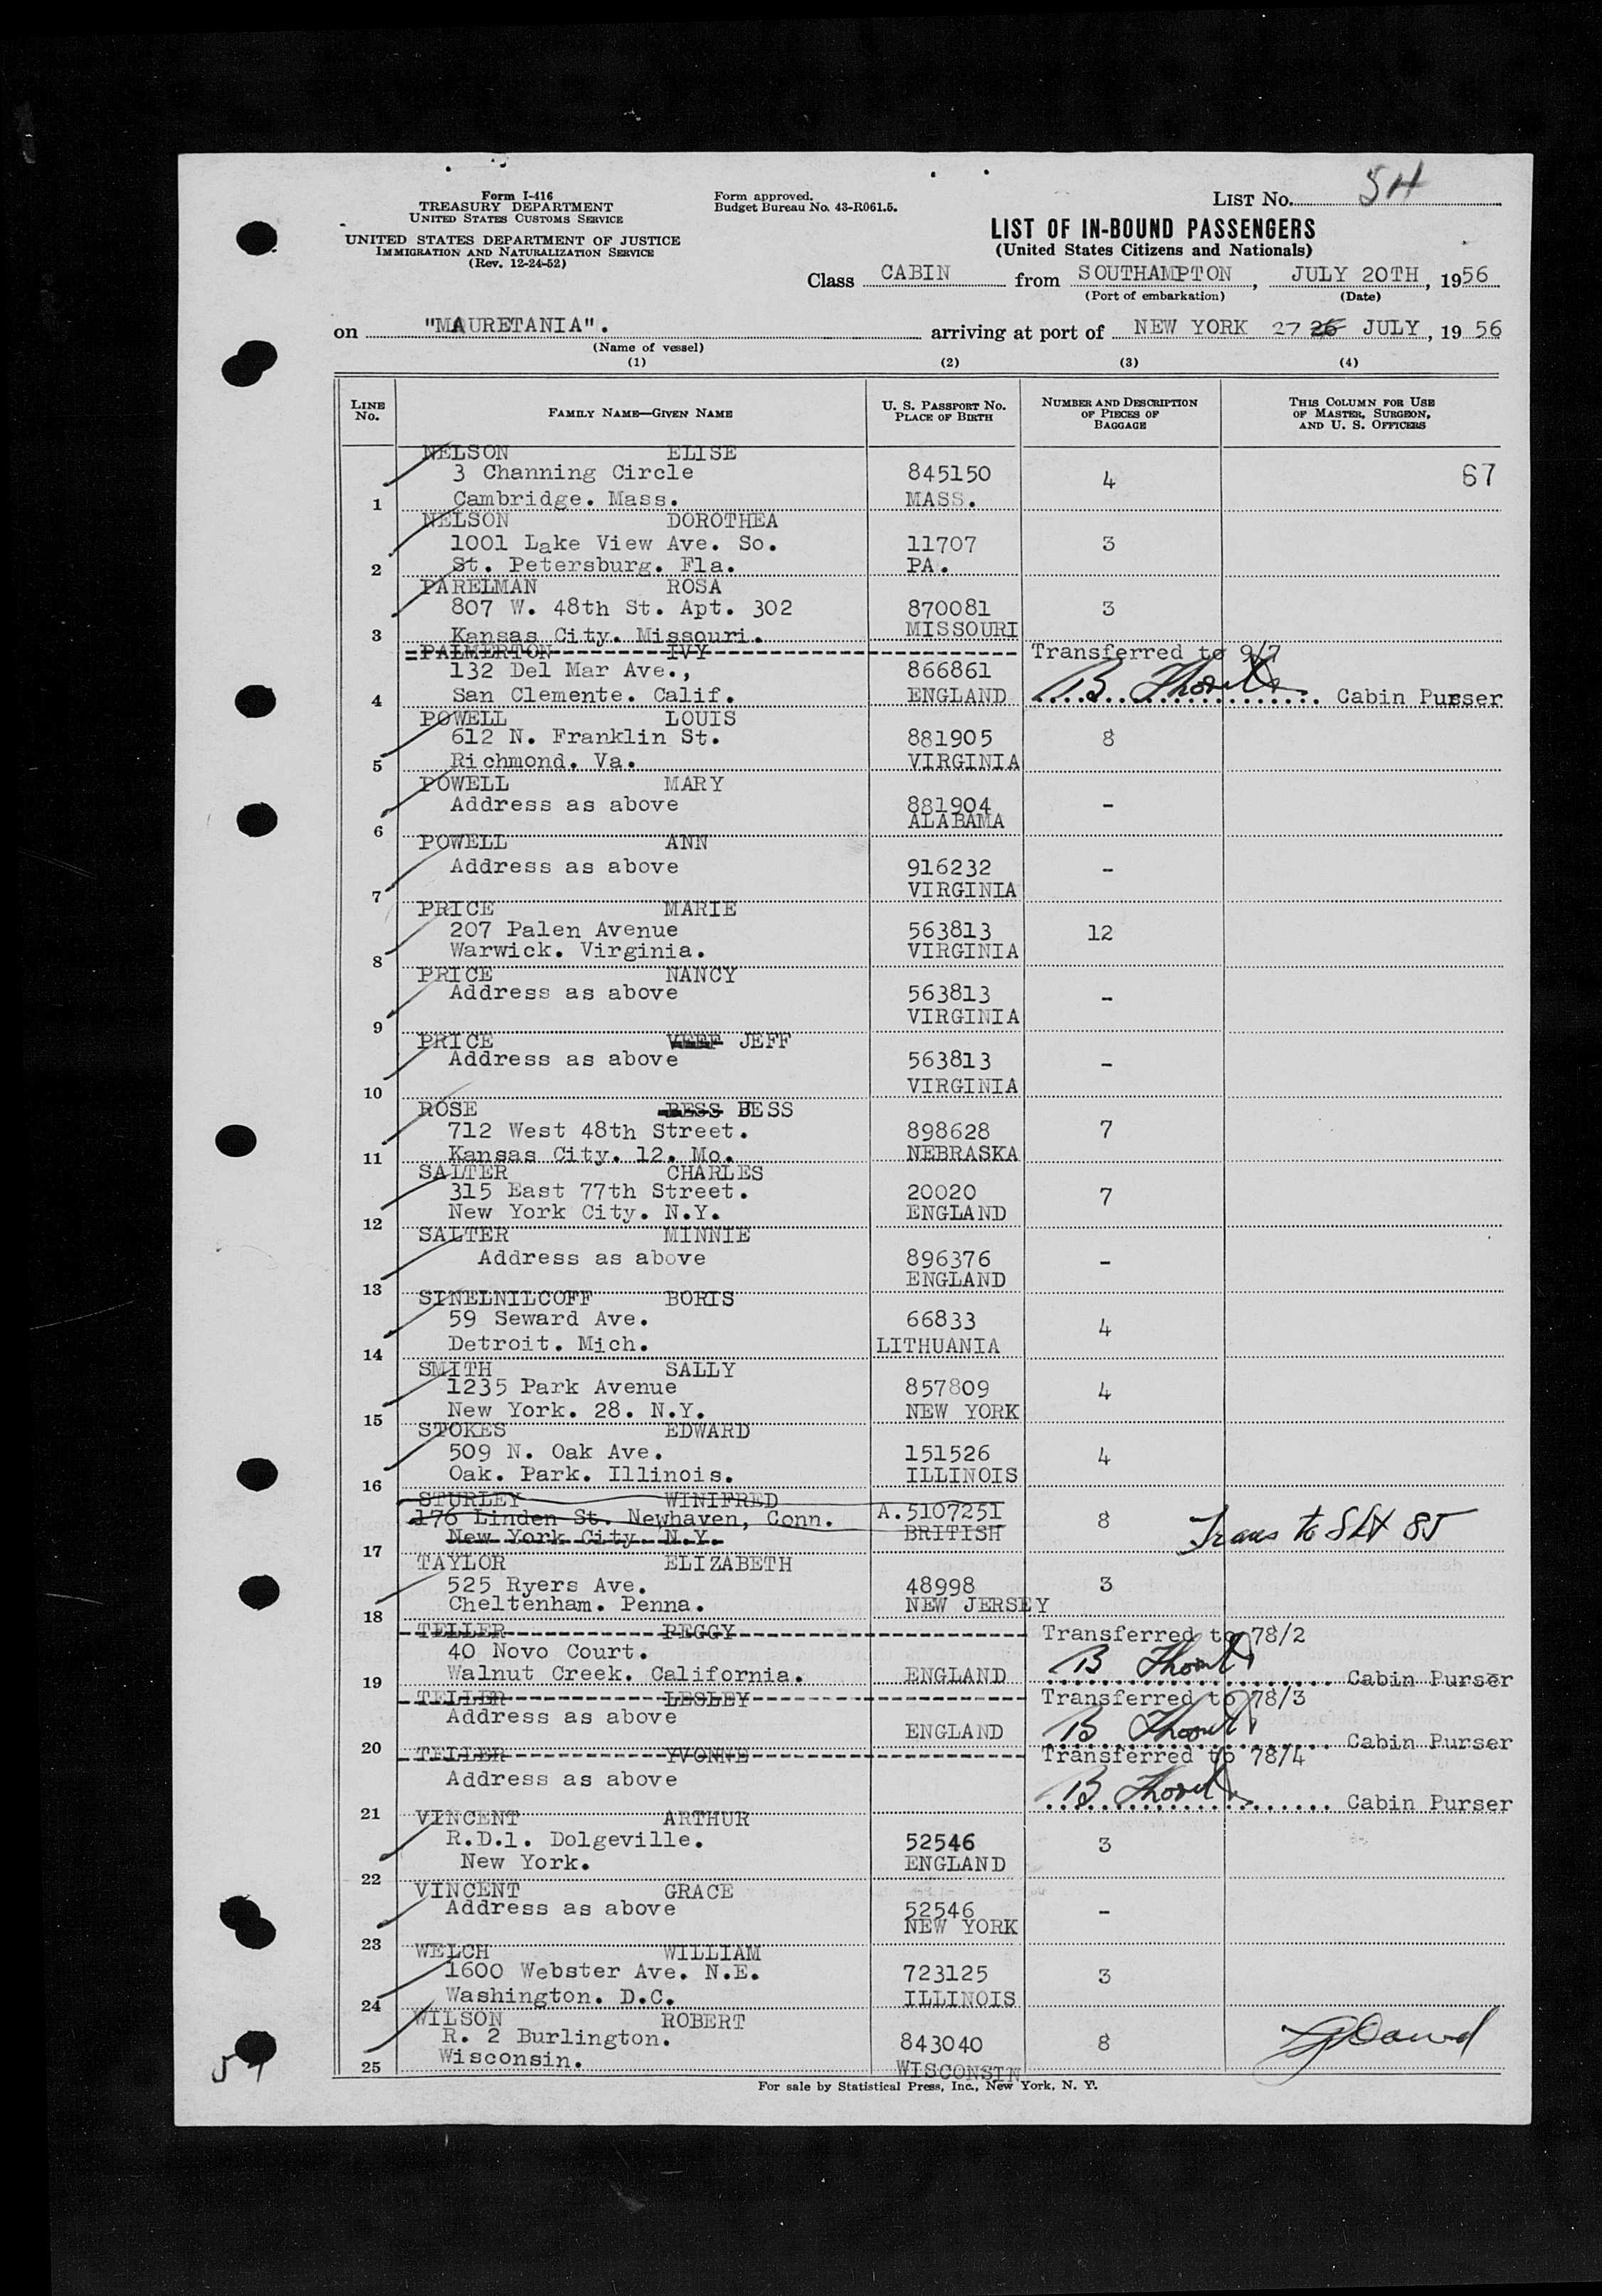 Form I-416
TREASURY DEPARTMENT
UNITED STATES CUSTOMS SERVICE
UNITED STATES DEPARTMENT OF JUSTICE
IMMIGRATION AND NATURALIZATION SERVICE
(Rev. 12-24-52)
Form approved.
Budget Bureau No. 43-R061.5.
LIST No.
LIST OF IN-BOUND PASSENGERS
(United States Citizens and Nationals)
Class CABIN from SOUTHAMPTON, JULY 20TH, 1956
(Port of embarkation) (Date)
on "MAURETANIA". arriving at port of NEW YORK 27 26 JULY, 19 56
(Name of vessel)
(1) (2) (3) (4)
LINE No. FAMILY NAME—GIVEN NAME U. S. PASSPORT No. PLACE OF BIRTH NUMBER AND DESCRIPTION OF PIECES OF BAGGAGE THIS COLUMN FOR USE OF MASTER, SURGEON, AND U. S. OFFICERS
NELSON ELISE
3 Channing Circle 845150 4 67
1 Cambridge. Mass. MASS.
NELSON DOROTHEA
1001 Lake View Ave. So. 11707 3
2 St. Petersburg. Fla. PA.
PARELMAN ROSA
807 W. 48th St. Apt. 302 870081 3
3 Kansas City. Missouri. MISSOURI
PALMERTON IVY Transferred to 9/7
132 Del Mar Ave., 866861
4 San Clemente. Calif. ENGLAND Cabin Purser
POWELL LOUIS
612 N. Franklin St. 881905 8
5 Richmond. Va. VIRGINIA
POWELL MARY
Address as above 881904 -
6 ALABAMA
POWELL ANN
Address as above 916232 -
7 VIRGINIA
PRICE MARIE
207 Palen Avenue 563813 12
8 Warwick. Virginia. VIRGINIA
PRICE NANCY
Address as above 563813 -
9 VIRGINIA
PRICE JEFF
Address as above 563813 -
10 VIRGINIA
ROSE BESS BESS
712 West 48th Street. 898628 7
11 Kansas City. 12. Mo. NEBRASKA
SALTER CHARLES
315 East 77th Street. 20020 7
12 New York City. N.Y. ENGLAND
SALTER MINNIE
Address as above 896376 -
13 ENGLAND
SINELNILCOFF BORIS
59 Seward Ave. 66833 4
14 Detroit. Mich. LITHUANIA
SMITH SALLY
1235 Park Avenue 857809 4
15 New York. 28. N.Y. NEW YORK
STOKES EDWARD
509 N. Oak Ave. 151526 4
16 Oak. Park. Illinois. ILLINOIS
STURLEY WINIFRED
176 Linden St. Newhaven, Conn. A.5107251 8 Trans to Sht 85
17 New York City. N.Y. BRITISH
TAYLOR ELIZABETH
525 Ryers Ave. 48998 3
18 Cheltenham. Penna. NEW JERSEY
TELLER PEGGY Transferred to 78/2
40 Novo Court.
19 Walnut Creek. California. ENGLAND Cabin Purser
TELLER LESLEY Transferred to 78/3
Address as above
20 ENGLAND Cabin Purser
TELLER YVONNE Transferred to 78/4
Address as above
21 Cabin Purser
VINCENT ARTHUR
R.D.1. Dolgeville. 52546 3
22 New York. ENGLAND
VINCENT GRACE
Address as above 52546 -
23 NEW YORK
WELCH WILLIAM
1600 Webster Ave. N.E. 723125 3
24 Washington. D.C. ILLINOIS
WILSON ROBERT
R. 2 Burlington. 843040 8
25 Wisconsin. WISCONSIN
For sale by Statistical Press, Inc., New York, N. Y.